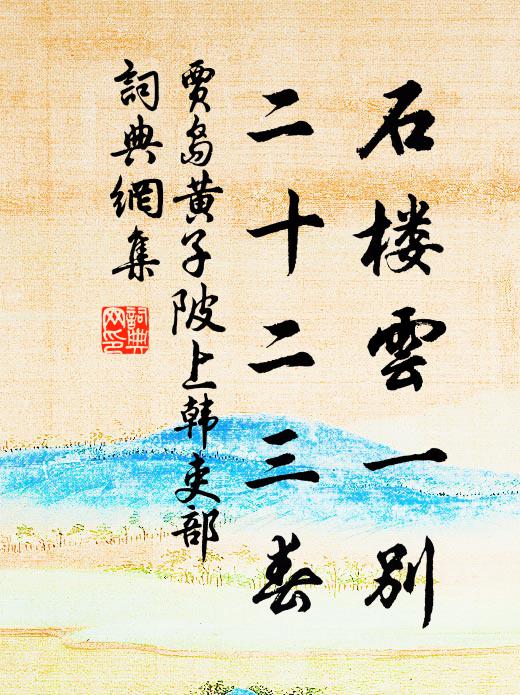 石楼雲一别
二十二三春
賈島黄子陂上韩吏部
詞典網集
詞典网印